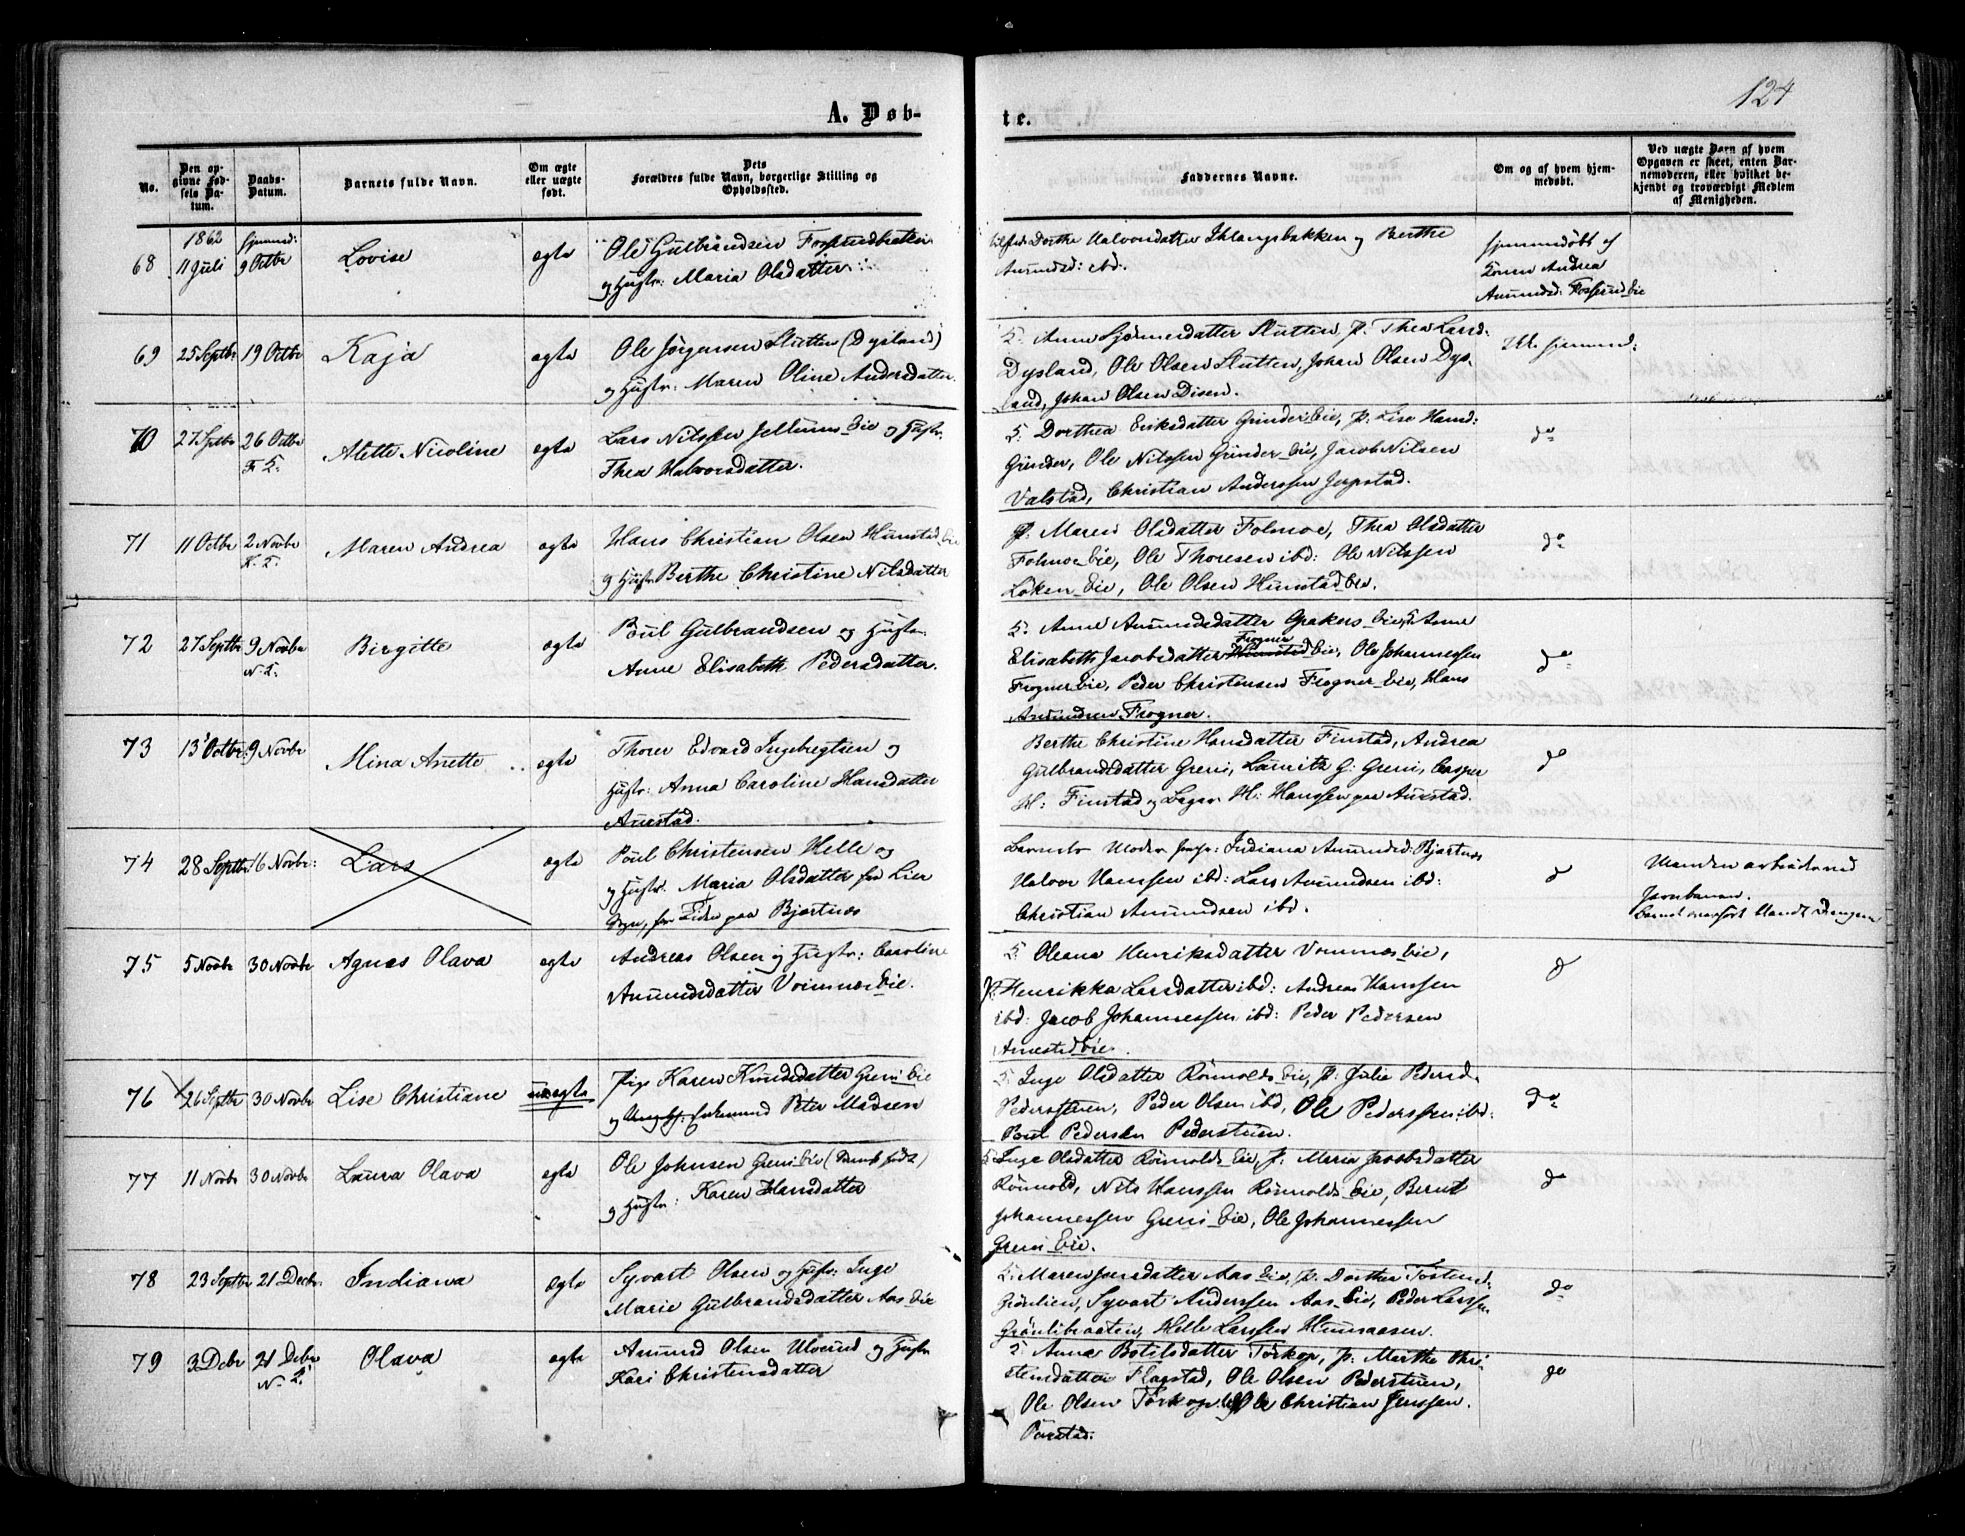 124
A. Døb-
te.
No.
Den op-
givne Fød-
sels Da-
tum.
Daabs-
Datum.
Barnets fulde Navn.
Om ægte
eller uægte
født.
Dets
Forældres fulde Navn, borgerlige Stilling og
Opholdssted.
Faddernes Navne.
Om og af hvem hjem-
medøbt.
Ved uægte Børn af hvem
Opgaven er skeet, enten Bar-
nemoderen, eller hvilket be-
kjendt og troværdigt Medlem
af Menigheden.
1862
68 11 Juli 9 Octbr Lovise ægte Ole Gulbrandsen
og Hustr: Maria Olsdatter
Dorthe Halvorsdatter og Berthe
Amundsd: ibd.
hjemmedøbt af
Andrea
Amundsd: Fosserud Eie
69 25 Septbr 19 Octbr Kaja ægte Ole Jørgensen Slutten (Dysland)
og Hustr: Maren Oline Andersdatter.
Slutten, p. Thea Larsd.
Dysland, Ole Olsen Slutten, Johan Olsen Dys-
land, Johan Olsen Disen.
Ikke hjemmed:
70 27 Septbr 26 Octbr Alette Nicoline ægte Lars Nilssen Jellum Eie og Hustr.
Thea Halvorsdatter.
Dorthea Eriksdatter Grinder Eie, p. Lise Hansd:
Grinder, Ole Nilssen Grinder Eie, Jacob Nilsen
Valstad, Christian Anderssen Jerpstad.
do
71 11 Octbr 2 Novbr Maren Andrea ægte Hans Christian Olsen Hunstad Eie
og Hustr Berthe Christine Nilsdatter
p. Maren Olsdatter Folmoe, Thea Olsdatter
Folmoe Eie, Ole Thoresen ibd: Ole Nilssen
Løken Eie, Ole Olsen Hunstad Eie.
do
72 27 Septbr 9 Novbr Birgitte ægte Poul Gulbrandsen og Hustr:
Anne Elisabeth Pedersdatter.
Anne Amundsdatter Eie, Anne
Frogner
Elisabeth Jacobsdatter Hunstad Eie, Ole Johannessen
Frogner Eie, Peder Christensen Frogner Eie, Hans
Amundsen Frogner.
do
73 13 Octbr 9 Novbr Mina Anette ægte Thorer Edvard Ingebregtsen og
Hustr: Anna Caroline Hansdatter
Aurstad.
Berthe Christine Hansdatter Finstad, Andrea
Gulbrandsdatter Greni, Lauritz G: Greni, Casper
H: Finstad og H: Hanssen paa Aurstad.
do
74 28 Septbr 16 Novbr: Lars ægte Poul Christensen Helle og
og Hustr: Maria Olsdatter fra Lier
paa Bjertnes
Barnets Moder Indiana Amundsd: Bjertnes
Halvor Hanssen ibd: Lars Amundsen ibd:
Christian Amundsen ibd.
d
Manden arbeider ved
Jernbanen.
75 5 Novbr 30 Novbr Agnes Olava ægte Andreas Olsen og Hustr: Caroline
Amundsdatter Eie.
Oleana Henriksdatter Eie,
Henrikka Larsdatter ibd: Andreas Hanssen
ibd: Jacob Johannessen ibd: Peder Pedersen
Eie.
d
76 26 Septbr 30 Novbr Lise Christiane uægte Pige Karen Knudsdatter Greni Eie
og Peter Madsen
Inge Olsdatter Rømolds Eie, p: Julia Pedersd.
Pederstuen, Peder Olsen ibd, Ole Pederssen ibd:
Poul Pedersen Pederstuen.
do
77 11 Novbr 30 Novbr Laura Olava ægte Ole Johnsen Greni Eie
og Hustr: Karen Hansdatter
Inge Olsdatter Rømolds Eie, p. Maria Jacobsdatter
Rømold, Nils Hanssen Rømolds Eie, Bernt
Johannessen Greni Eie, Ole Johannessen
Greni Eie.
do
78 23 Septbr 21 Decbr Indiana ægte Syvart Olsen og Hustr: Inge
Marie Gulbrandsdatter Aas Eie
Maren Jensdatter Aas Eie, p. Dorthea
Grønlien, Syvart Anderssen Aas Eie, Peder Larssen
Grønlibraaten, Helle Larssen
do
79 3 Debr 21 Debr Olava ægte Amund Olsen Ulverud og Hustr
Kari Christensdatter
Anna Botilsdatter Tørkop, p: Marthe Chri-
stensdatter Flagstad, Ole Olsen Pederstuen,
Ole Olsen Tørkop og Ole Christian Jenssen.
do